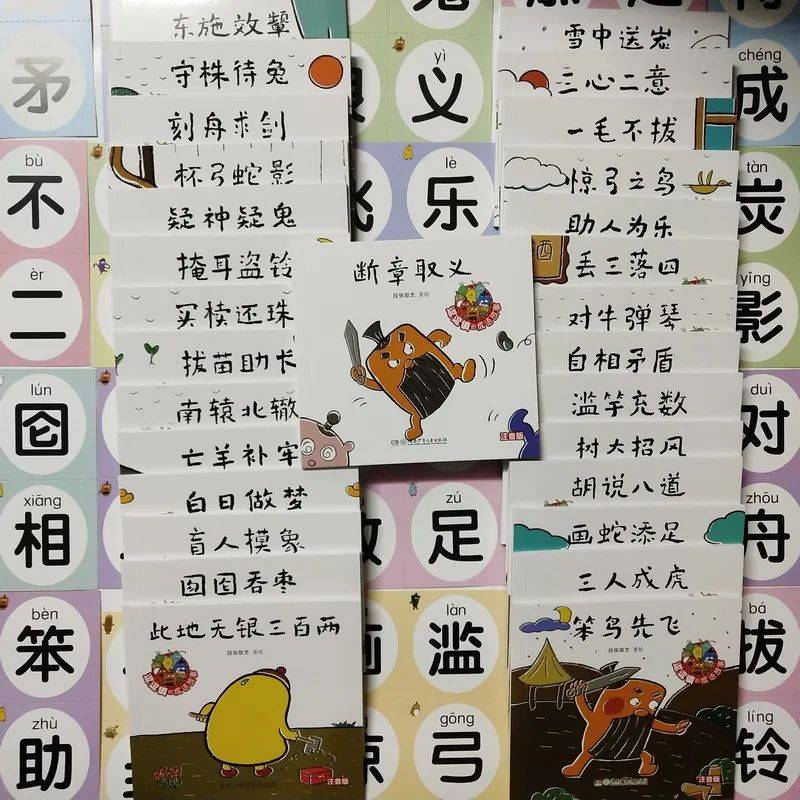 东施效颦
守株待兔
刻舟求剑
杯弓蛇影
疑神疑鬼
掩耳盗铃
买椟还珠
拔苗助长
南辕北辙
亡羊补牢
白日做梦
盲人摸象
囫囵吞枣
此地无银三百两
段张取艺 著绘
注音版
断章取义
段张取艺 著绘
注音版
雪中送炭
三心二意
一毛不拔
惊弓之鸟
助人为乐
丢三落四
对牛弹琴
自相矛盾
滥竽充数
树大招风
胡说八道
画蛇添足
三人成虎
笨鸟先飞
段张取艺 著绘
注音版
酒
矛
bù
不
èr
二
lún
囵
xiāng
相
bèn
笨
zhù
助
yì
义
lè
乐
zú
足
làn
滥
gōng
弓
chéng
成
tàn
炭
yǐng
影
duì
对
zhōu
舟
bá
拔
líng
铃